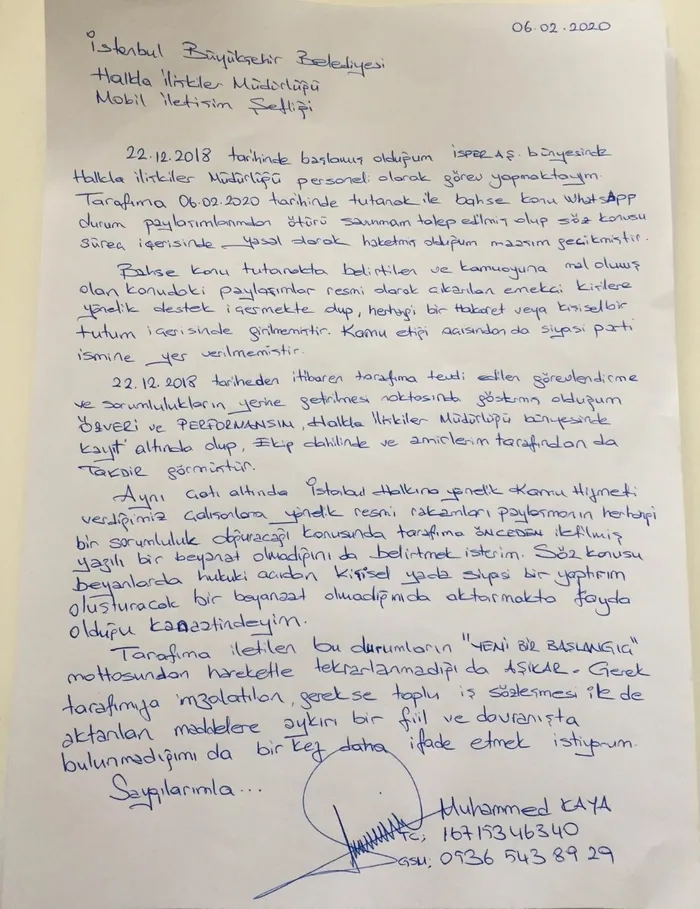 06.02.2020
İstanbul Büyükşehir Belediyesi
Halkla İlişkiler Müdürlüğü
Mobil İletişim Şefliği
22.12.2018 tarihinde başlamış olduğum İSPER AŞ. bünyesinde
Halkla ilişkiler Müdürlüğü personeli olarak görev yapmaktayım.
Tarafıma 06.02.2020 tarihinde tutanak ile bahse konu WhatsApp
durum paylaşımlarımdan ötürü savunmam talep edilmiş olup söz konusu
süreç içerisinde yasal olarak haketmiş olduğum maaşım gecikmiştir.
Bahse konu tutanakta belirtilen ve kamuoyuna mal olmuş
olan konudaki paylaşımlar resmi olarak çıkarılan emekçi kişilere
yönelik destek içermekte olup, herhangi bir Hakaret veya kişisel bir
tutum içerisinde girilmemiştir. Kamu etiği açısından da siyasi parti
ismine yer verilmemiştir.
22.12.2018 tariheden itibaren tarafıma tevdi edilen görevlendirme
ve sorumlulukların yerine getirilmesi noktasında göstermiş olduğum
ÖZVERİ ve PERFORMANSIM, Halkla İlişkiler Müdürlüğü bünyesinde
kayıt altında olup, Ekip dahilinde ve amirlerim tarafından da
TAKDİR görmüştür.
Aynı çatı altında İstanbul Halkına yönelik Kamu Hizmeti
verdiğimiz çalışanlara yönelik resmi rakamları paylaşmanın herhangi
bir sorumluluk doğuracağı konusunda tarafıma ÖNCEDEN iletilmiş
yazılı bir beyanat olmadığını da belirtmek isterim. Söz konusu
beyanlarda hukuki açıdan kişisel yada siyasi bir yaptırım
oluşturacak bir beyanaat olmadığınıda aktarmakta fayda
olduğu kanaatindeyim.
Tarafıma iletilen bu durumların "YENİ BİR BAŞLANGIÇ"
mottosundan hareketle tekrarlanmadığı da AŞİKAR. Gerek
tarafımıza imzalatılan, gerekse toplu iş sözleşmesi ile de
aktarılan maddelere aykırı bir fiil ve davranışta
bulunmadığımı da bir kez daha ifade etmek istiyorum.
Saygılarımla...
Muhammed KAYA
TC; 16719346340
GSM; 0936 543 89 29